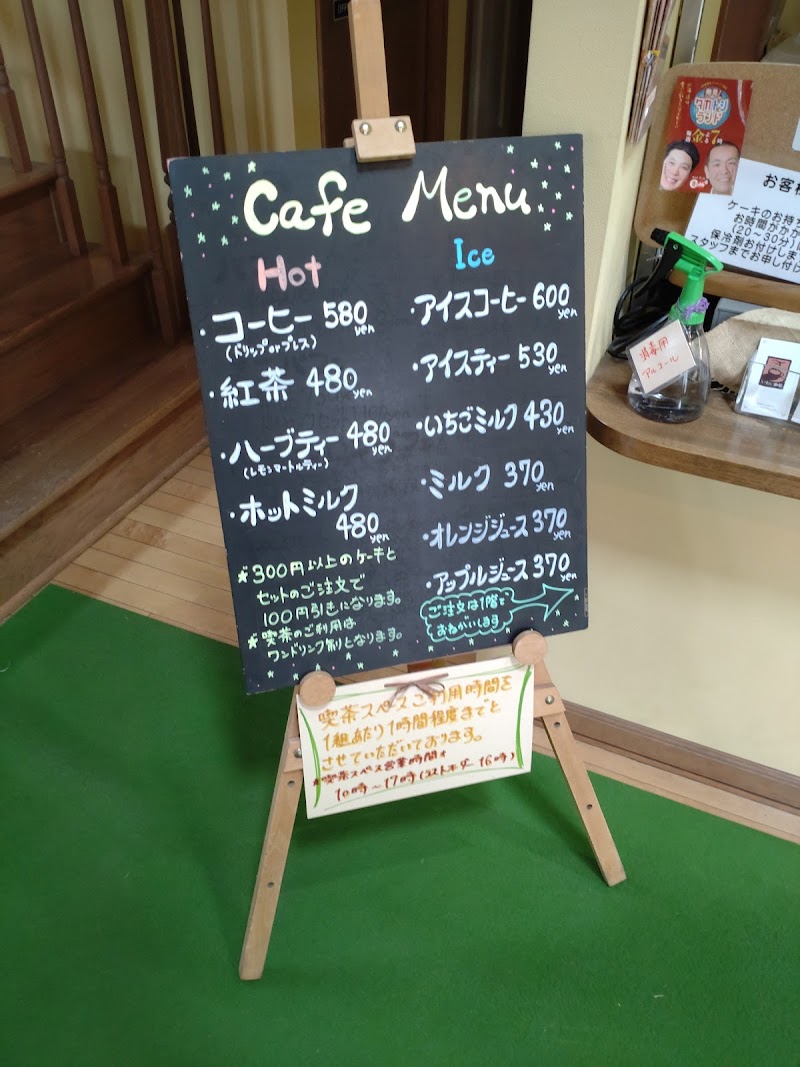 Cafe Menu
Hot
・コーヒー 580yen
(ドリップorプレス)
・紅茶 480yen
・ハーブティー 480yen
(レモンマートルティー)
・ホットミルク
480yen
Ice
・アイスコーヒー 600yen
・アイスティー 530yen
・いちごミルク 430yen
・ミルク 370yen
・オレンジジュース 370yen
・アップルジュース 370yen
★300円以上のケーキと
セットのご注文で
100円引きになります。
★喫茶のご利用は
ワンドリンク制となります。
ご注文は1階で
おねがいします
喫茶スペースご利用時間を
1組あたり1時間程度までと
させていただいております。
*喫茶スペース営業時間*
10時~17時(ラストオーダー 16時)
タカトシ
ランド
金 7時
お客様
ケーキのお持
お時間がか
(20~30分)
保冷剤お付けしま
スタッフまでお申し付
消毒用
アルコール